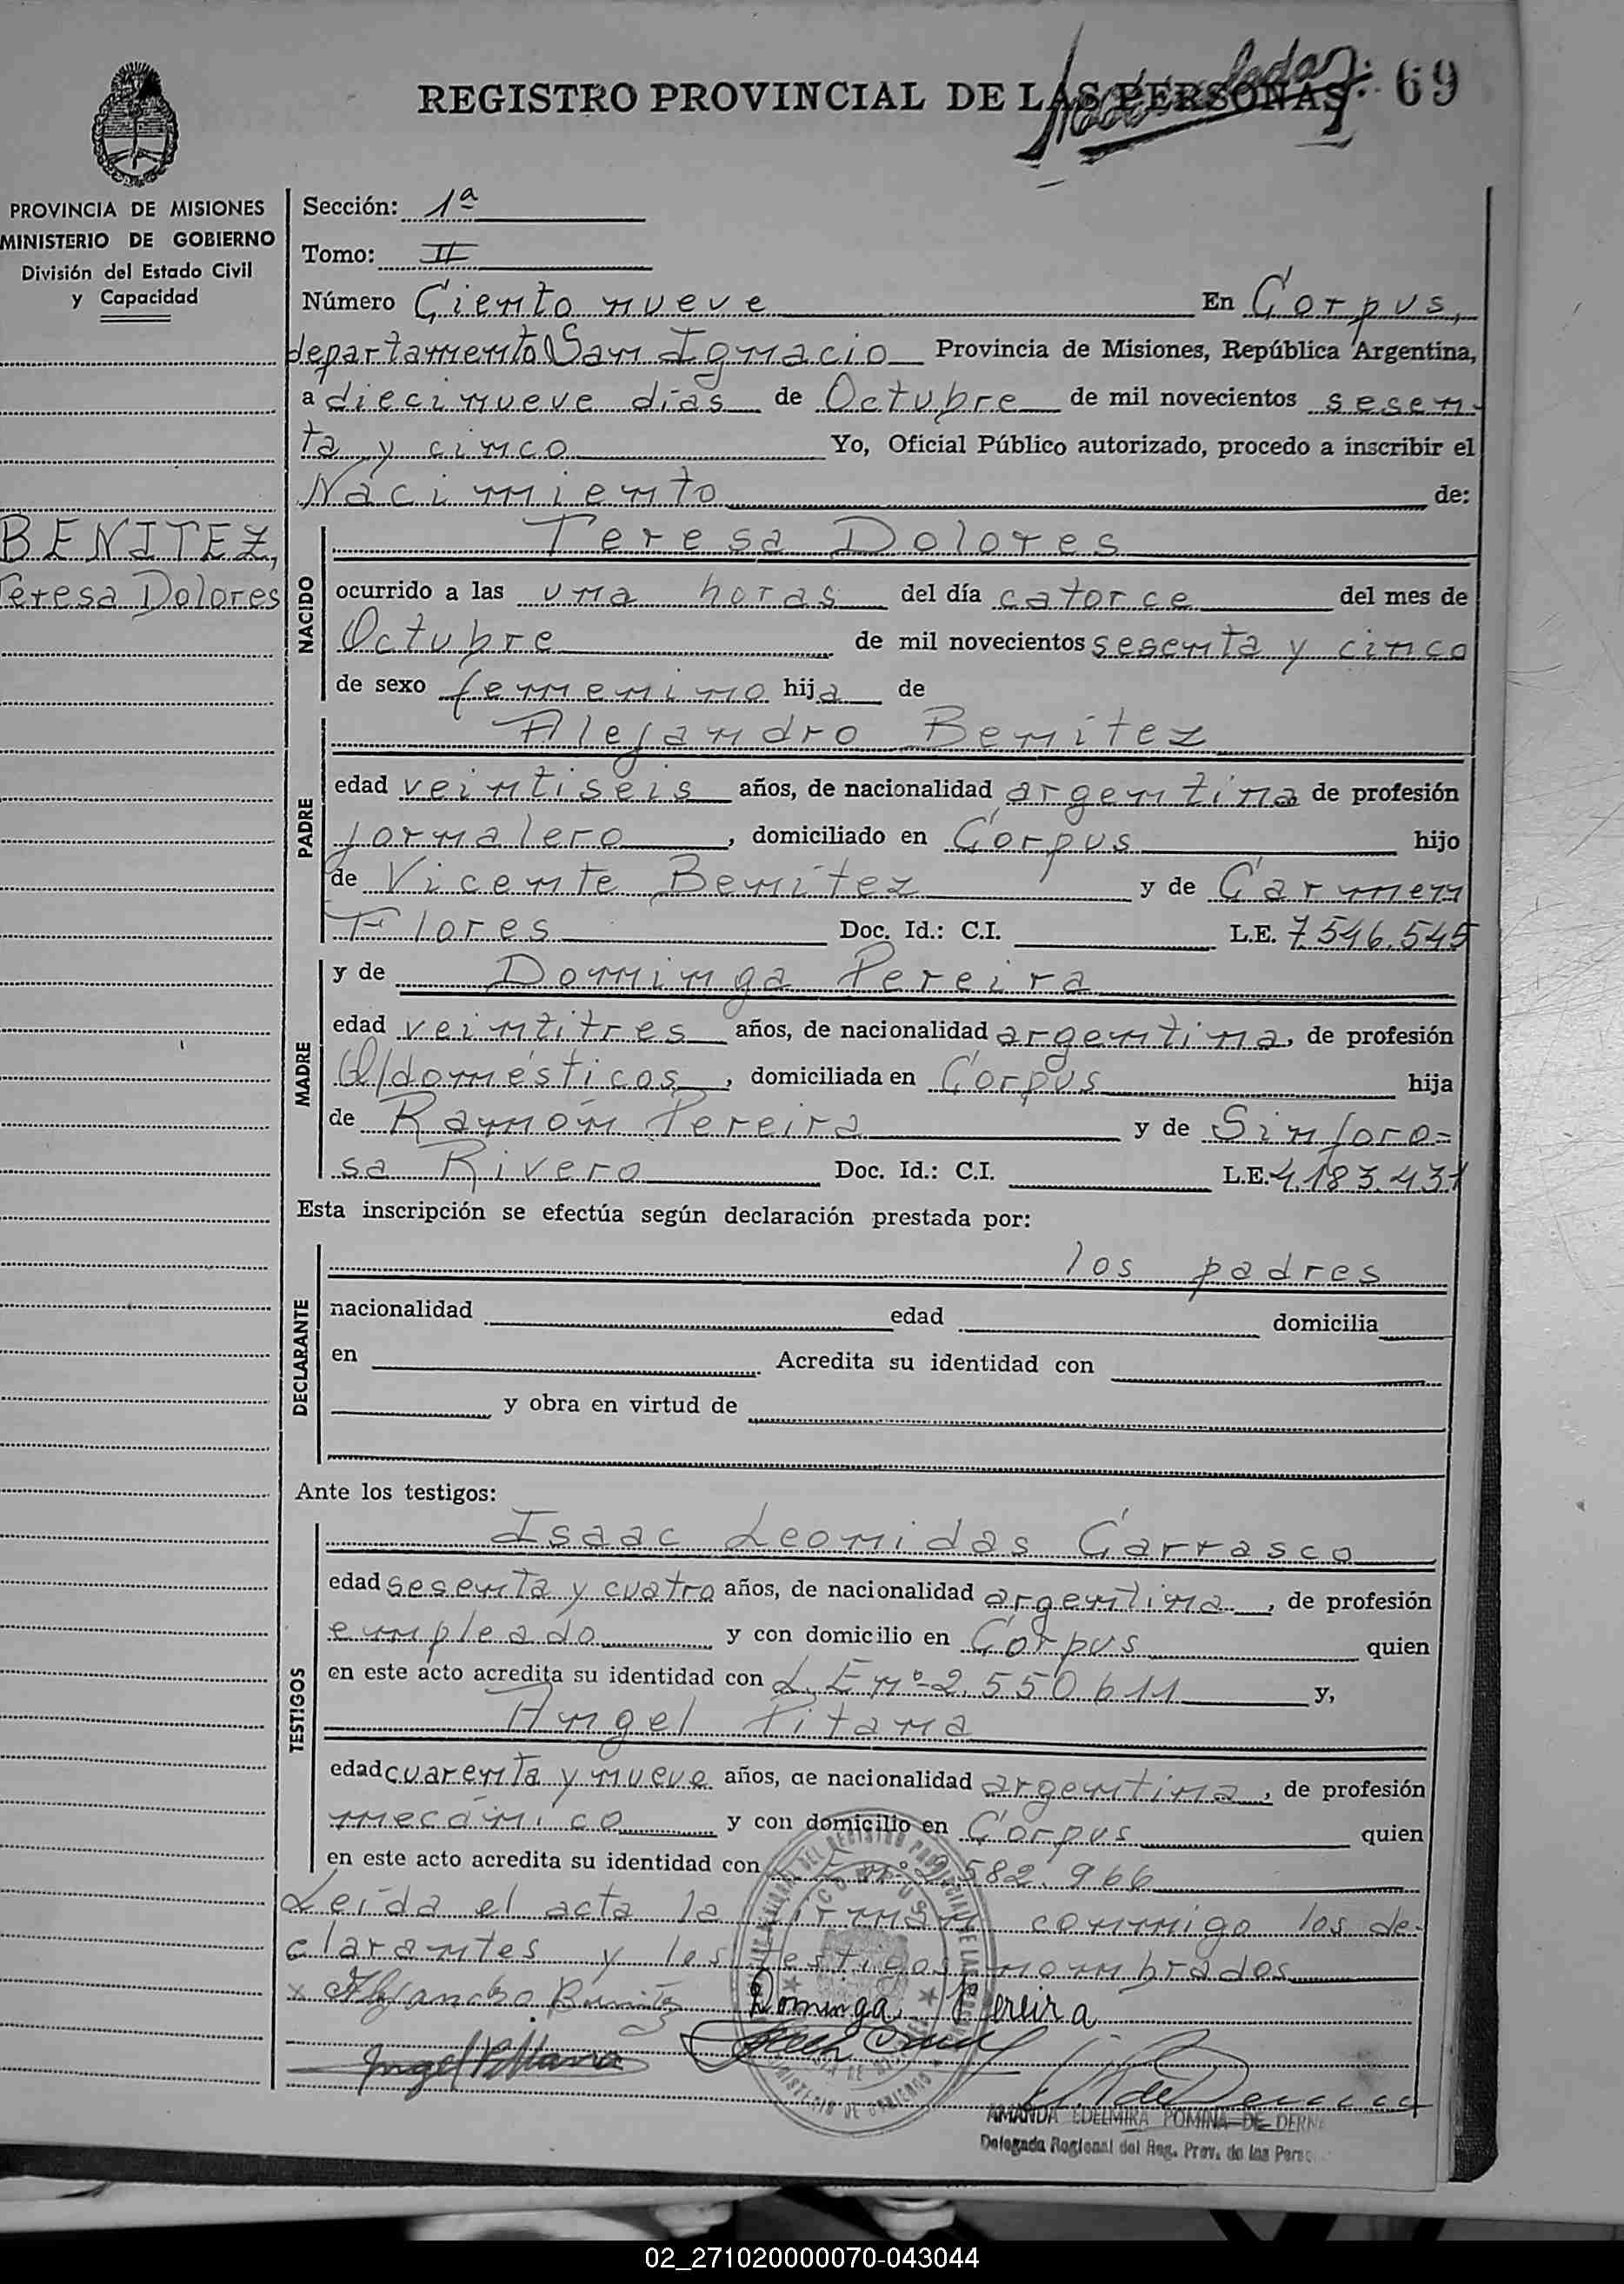 REGISTRO PROVINCIAL DE LAS PERSONAS 69
PROVINCIA DE MISIONES
MINISTERIO DE GOBIERNO
División del Estado Civil
y Capacidad
BENITEZ,
Teresa Dolores
Sección: 1ª
Tomo: II
Número Ciento nueve En Corpus,
departamento San Ignacio Provincia de Misiones, República Argentina,
a diecinueve días de Octubre de mil novecientos sesen-
ta y cinco Yo, Oficial Público autorizado, procedo a inscribir el
Nacimiento de:
NACIDO
Teresa Dolores
ocurrido a las una horas del día catorce del mes de
Octubre de mil novecientos sesenta y cinco
de sexo femenino hija de
PADRE
Alejandro Benitez
edad veintiseis años, de nacionalidad argentina de profesión
jornalero, domiciliado en Corpus hijo
de Vicente Benitez y de Carmen
Flores Doc. Id.: C.I. L.E. 7.546.545
MADRE
y de Dominga Pereira
edad veintitres años, de nacionalidad argentina, de profesión
Q/domésticos, domiciliada en Corpus hija
de Ramón Pereira y de Sinforo=
sa Rivero Doc. Id.: C.I. L.E. 4.183.431
Esta inscripción se efectúa según declaración prestada por:
DECLARANTE
los padres
nacionalidad edad domicilia
en Acredita su identidad con
y obra en virtud de
Ante los testigos:
TESTIGOS
Isaac Leonidas Carrasco
edad sesenta y cuatro años, de nacionalidad argentina, de profesión
empleado y con domicilio en Corpus quien
en este acto acredita su identidad con L. E nº 2.550.611 y,
Angel Pitana
edad cuarenta y nueve años, de nacionalidad argentina, de profesión
mecánico y con domicilio en Corpus quien
en este acto acredita su identidad con nº 2.582.966
Leída el acta la firman conmigo los de-
clarantes y los testigos nombrados
x Alejandro Benitez Dominga Pereira
Angel Pitana
AMANDA EDELMIRA POMINA DE
Delegada Regional del Reg. Prov. de las
02_271020000070-043044